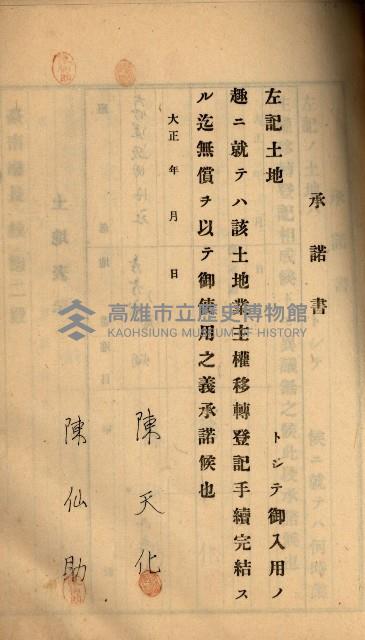 承諾書
左記土地　　　　トシテ御入用ノ
趣ニ就テハ該土地業主權移轉登記手續完結ス
ル迄無償ヲ以テ御使用之義承諾候也
大正　年　月　日
陳天化
陳仙助
高雄市立歷史博物館
KAOHSIUNG MUSEUM OF HISTORY